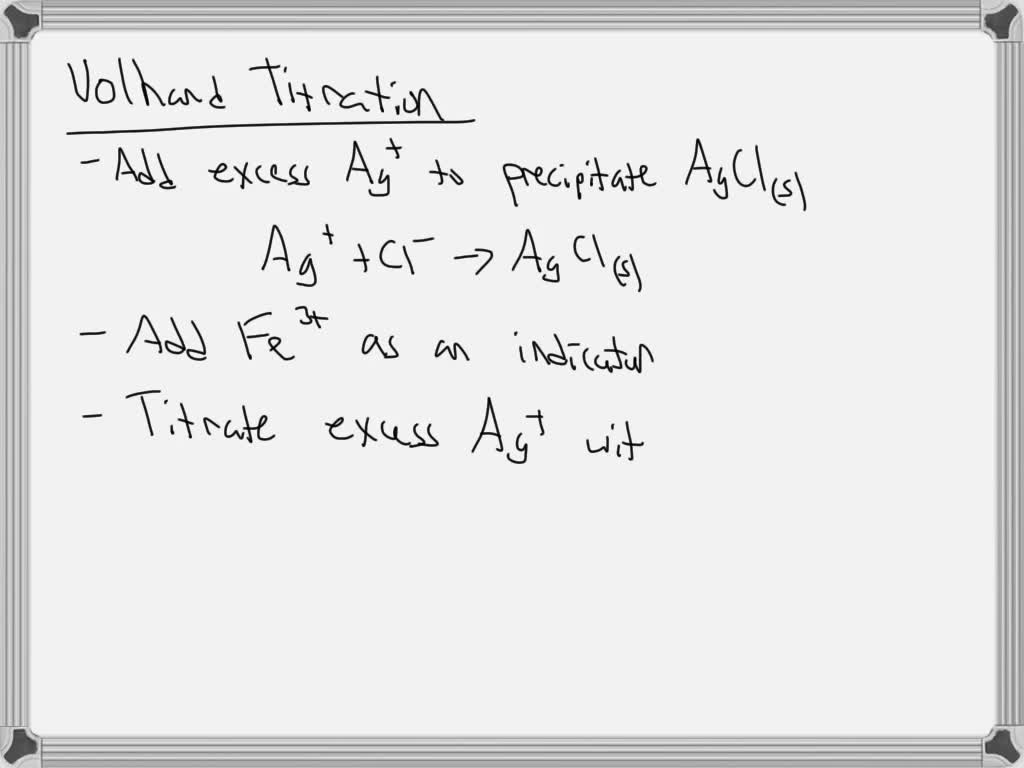 Volhard Titration
- Add excess Ag⁺ to precipitate AgCl(s)
Ag⁺ + Cl⁻ → AgCl(s)
- Add Fe³⁺ as an indicator
- Titrate excess Ag⁺ wit